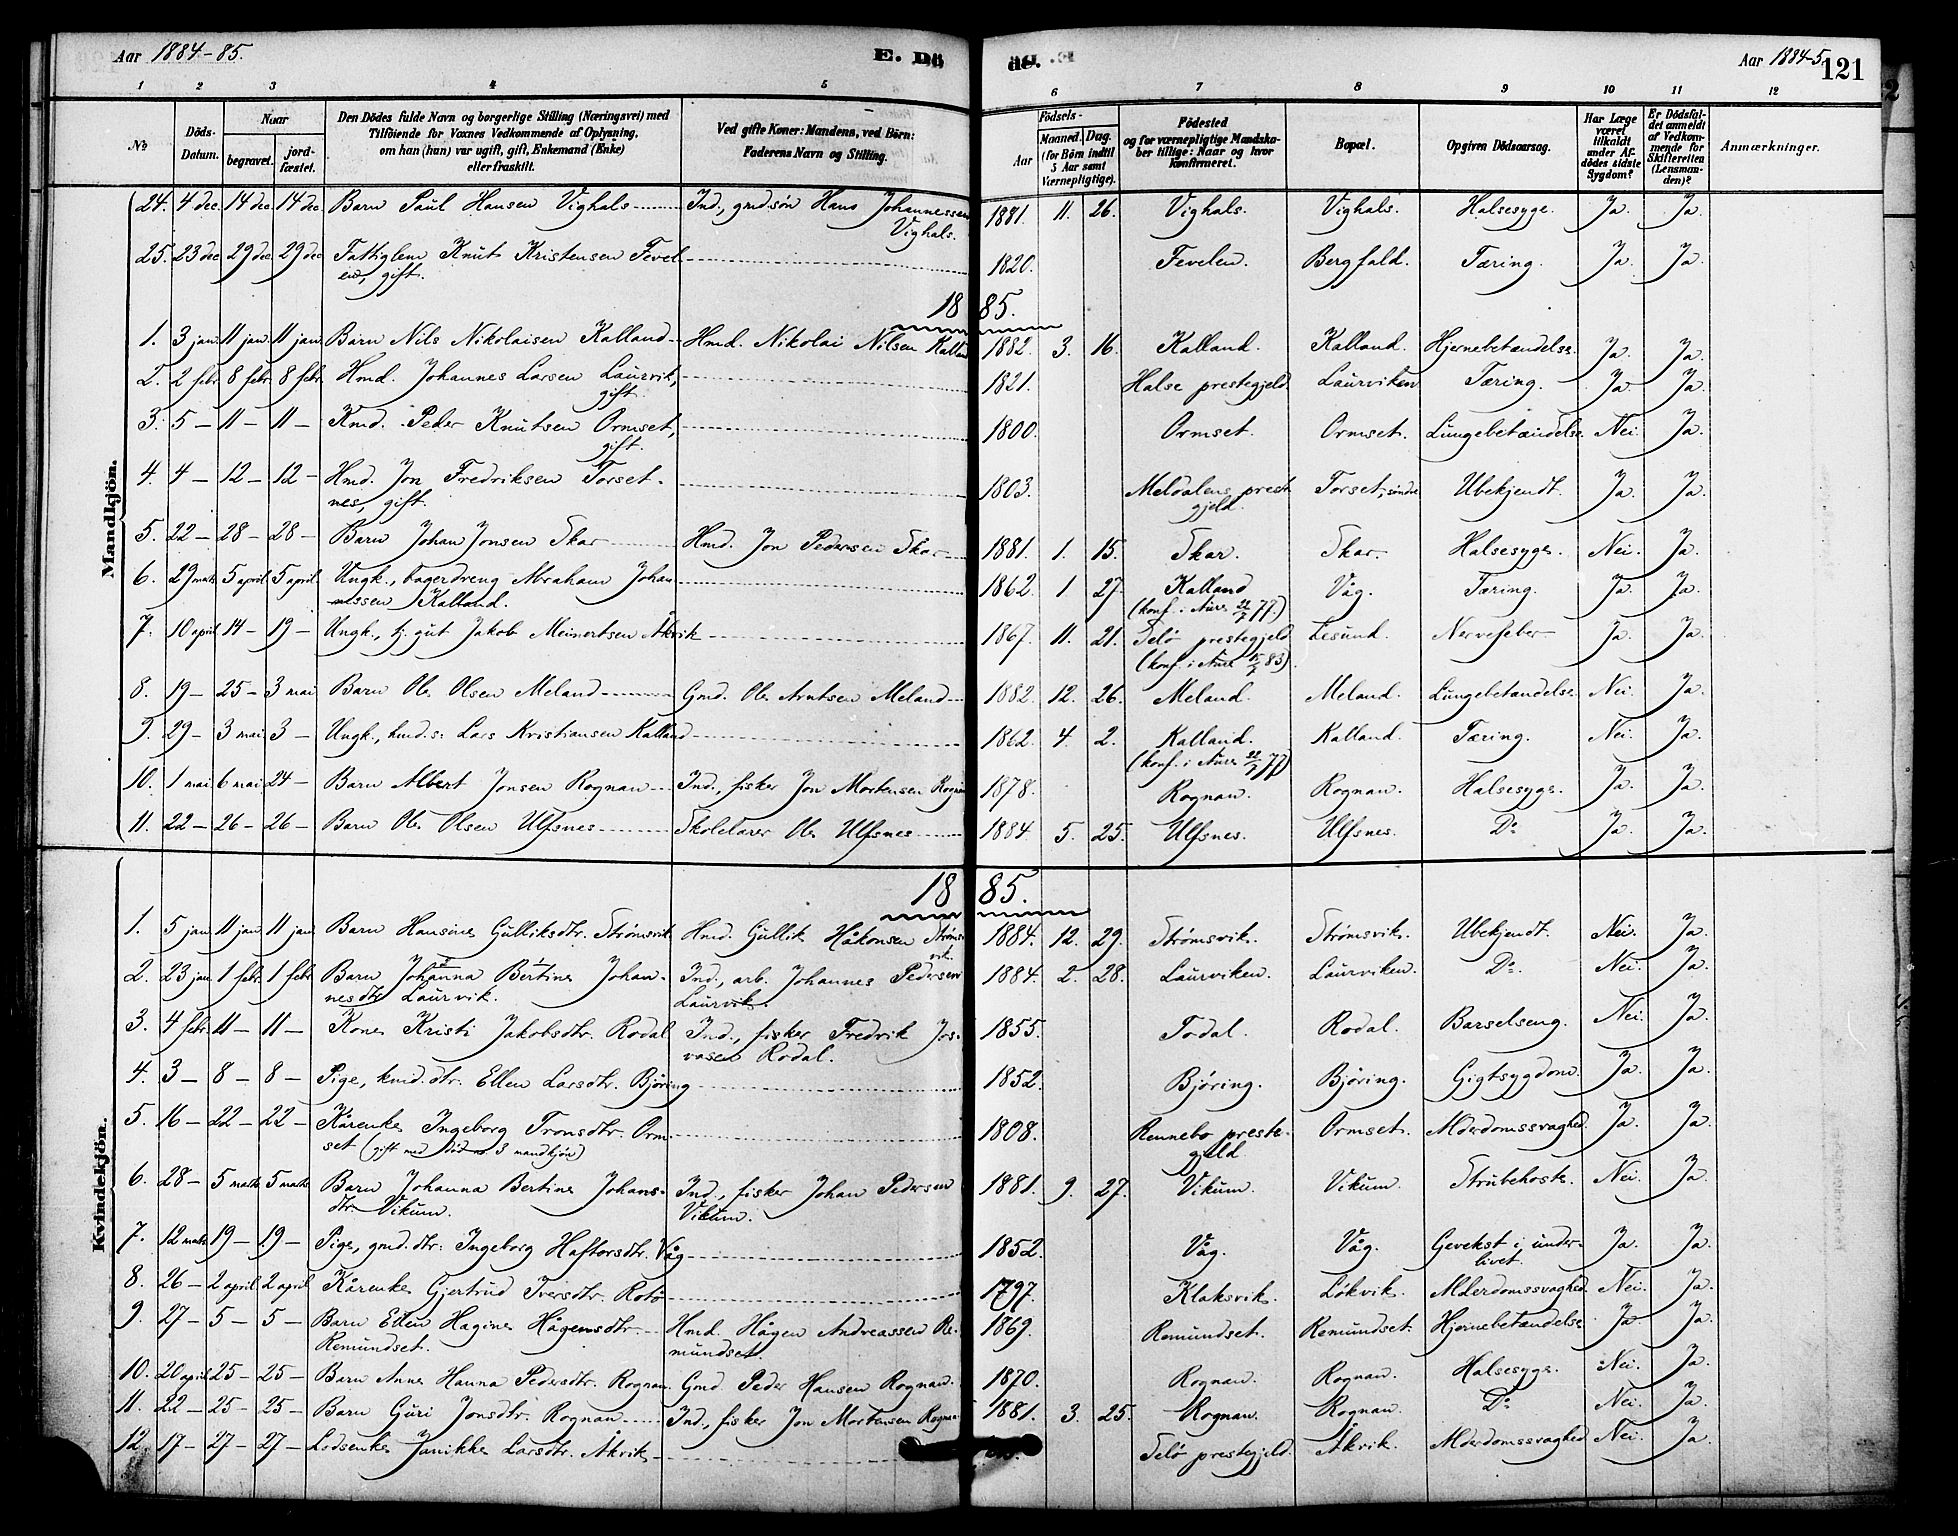 Aar 1884-85.
E. Dö
öd.
Aar 1884-5.
121
1 2 3 4 5 6 7 8 9 10 11 12
No
Döds-Datum.
Naar
begravet.
jord-fæstet.
Den Dödes fulde Navn og borgerlige Stilling (Næringsvei) med
Tilföiende for Voxnes Vedkommende af Oplysning,
om han (hun) var ugift, gift, Enkemand (Enke)
eller fraskilt.
Ved gifte Koner: Mandens, ved Börn:
Faderens Navn og Stilling.
Födsels-
Aar
Maaned. Dag.
(for Börn indtil
5 Aar samt
Værnepligtige).
Födested
og for værnepligtige Mandska-
ber tillige: Naar og hvor
konfirmeret.
Bopæl.
Opgiven Dödsaarsag.
Har Læge
været
tilkaldt
under Af-
dödes sidste
Sygdom?
Er Dödsfal-
det anmeldt
af Vedkom-
mende for
Skifteretten
(Lensman-
den)?
Anmærkninger.
Mandkjön.
24. 4 dec 14 dec 14 dec Barn Paul Hansen Vighals Ind., gmd.søn Hans Johannessen Vighals. 1881. 11. 26. Vighals. Vighals. Halsesyge. Ja. Ja.
25. 23 dec 29 dec 29 dec Fattiglem Knut Kristensen Fevel-
en, gift. 1820. Fevelen. Bergfald. Tæring. Ja. Ja.
1885.
1. 3 jan 11 jan 11 jan Barn Nils Nikolaisen Kalland Hmd. Nikolai Nilsen Kalland 1882. 3. 16. Kalland. Kalland. Hjernebetændelse. Ja. Ja.
2. 2 febr 8 febr 8 febr Hmd. Johannes Larsen Laurvik,
gift. 1821. Halse prestegjeld Laurviken Tæring. Ja. Ja.
3. 5 – 11 – 11 – Kmd. Peder Knutsen Ormset,
gift. 1800. Ormset. Ormset. Lungebetændelse. Nei. Ja.
4. 4 – 12 – 12 – Hmd. Jon Fredriksen Torset-
nes, gift. 1803. Meldalens prest
gjeld. Torset, søndre Ubekjendt. Ja. Ja.
5. 22 – 28 – 28 – Barn Johan Jonsen Skar Hmd. Jon Pedersen Skar 1881. 1. 15. Skar. Skar. Halsesyge. Nei. Ja.
6. 29 mats 5 april 5 april Ungk., bagerdreng Abraham Johan
nessen Kalland. 1862. 1 27. Kalland
(konf. i Aure 22/7 77.) Våg. Tæring. Ja. Ja.
7. 10 april 14 – 19 – Ungk., tj.gut Jakob Meinertsen Åkvik 1867. 11. 21. Edø prestegjeld
(konf. i Aure 15/7 83). Lesund. Nervefeber Ja. Ja.
8. 19 – 25 – 3 mai Barn Ole Olsen Meland Gmd. Ole Arntsen Meland 1882. 12. 26. Meland. Meland. Lungebetændelse. Nei. Ja.
9. 29 – 3 mai 3 – Ungk., hmd.s: Lars Kristiansen Kalland 1862. 4. 2. Kalland.
(konf. i Aure 22/7 77) Kalland. Tæring. Nei. Ja.
10. 1 mai 6 mai 24 – Barn Albert Jonsen Rognan Ind., fisker Jon Mortensen Rognan 1878. Rognan. Rognan. Halsesyge. Ja. Ja.
11. 22 – 26 – 26 – Barn Ole Olsen Ulfsnes Skolelærer Ole Ulfsnes 1884 5. 25. Ulfsnes. Ulfsnes. Do Ja. Ja.
Kvindekjön.
1885.
1. 5 jan 11 jan 11 jan Barn Hansine Gulliksdtr. Strømsvik Hmd. Gullik Håkonsen Strøms-
vik. 1884. 12. 29. Strømsvik. Strømsvik. Ubekjendt. Nei. Ja.
2. 23 jan 1 febr 1 febr Barn Johanna Bertine Johan-
nesdtr Laurvik. Ind., arb. Johannes Pedersen
Laurvik. 1884. 2. 28. Laurviken. Laurviken. Do. Nei. Ja.
3. 4 febr 11 – 11 – Kone Kristi Jakobsdtr. Rodal Ind., fisker Fredrik Jos-
vasen Rodal. 1855. Todal. Rodal. Barselseng. Nei. Ja.
4. 3 – 8 – 8 – Pige, kmd.dtr. Ellen Larsdtr. Bjøring 1852. Bjøring. Bjøring. Gigtsygdom. Ja. Ja.
5. 16 – 22 – 22 – Kårenke Ingeborg Tronsdtr. Orm-
set (gift med død no 3 mandkjøn) 1808. Rennebo preste-
gjeld Ormset. Alderdomssvaghed. Ja. Ja.
6. 28 – 5 mats 5 mats Barn Johanna Bertine Johans-
dtr. Vikum. Ind., fisker Johan Pedersen
Vikum. 1881. 9. 27. Vikum. Vikum. Strubehoste. Nei. Ja.
7. 12 mats 19 – 19 – Pige, gmd.dtr: Ingeborg Haftorsdtr. Våg 1852. Våg. Våg. Gevekst i under-
livet. Ja. Ja.
8. 26 – 2 april 2 april Kårenke Gjertrud Iversdtr. Rotø 1797. Klaksvik. Løkvik. Alderdomssvaghed. Nei. Ja.
9. 27 – 5 – 5 – Barn Ellen Hagine Hågensdtr.
Remundset. Hmd. Hågen Andreassen Re-
mundset. 1869. Remundset. Remundset. Hjernebetændelse Ja Ja.
10. 20 april 25 – 25 – Barn Anne Hanna Pedersdtr. Rognan. Gmd Peder Hansen Rognan. 1870. Rognan. Rognan. Halsesyge. Nei. Ja.
11. 22 – 25 – 25 – Barn Guri Jonsdtr. Rognan Ind., fisker Jon Mortensen Rognan 1881. 3. 25. Rognan. Rognan. Do Nei. Ja.
12. 17 – 27 – 27 – Lodsenke Janikke Larsdtr. Åkvik Edø prestegjeld. Åkvik. Alderdomssvaghed Nei. Ja.